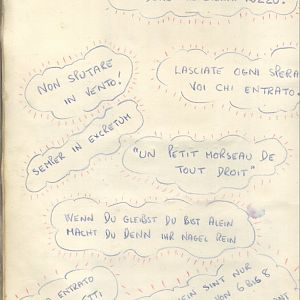 NON SPUTARE
IN VENTO!
LASCIATE OGNI SPERA
VOI CHI ENTRATO.
SEMPER IN EXCRETUM
"UN PETIT MORSEAU DE
TOUT DROIT"
WENN DU GLEIBST DU BIST ALEIN
MACHT DU DENN IHR NAGEL REIN
ENTRATO
EIN SINT NUR
ON 6 BIS 8